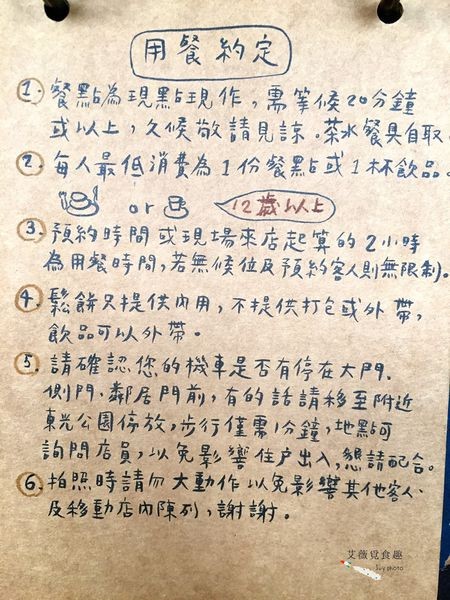 用餐約定
1. 餐點為現點現作，需等候20分鐘
或以上，久候敬請見諒。茶水餐具自取。
2. 每人最低消費為1份餐點或1杯飲品。
or 12歲以上
3. 預約時間或現場來店起算的2小時
為用餐時間，若無候位及預約客人則無限制。
4. 鬆餅只提供內用，不提供打包或外帶，
飲品可以外帶。
5. 請確認您的機車是否有停在大門、
側門，鄰居門前，有的話請移至附近
東光公園停放，步行僅需1分鐘，地點可
詢問店員，以免影響住戶出入，懇請配合。
6. 拍照時請勿大動作以免影響其他客人、
及移動店內陳列，謝謝。
艾薇覓食趣
Ivy photo